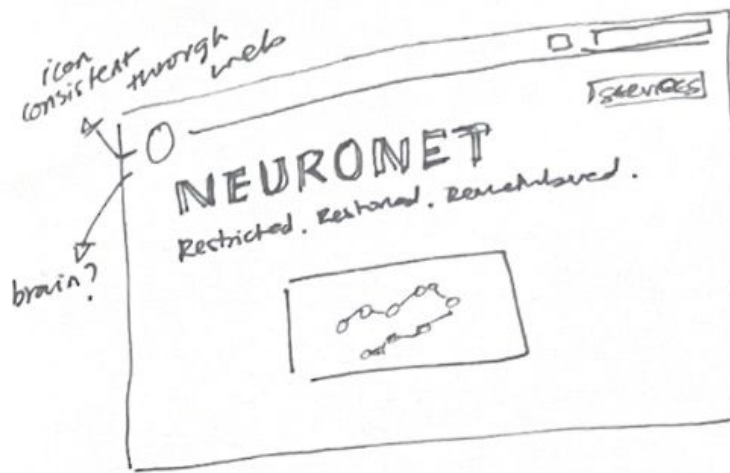 icon
consistent
through
web
SERVICES
NEURONET
Restricted. Restored. Remembered.
brain?